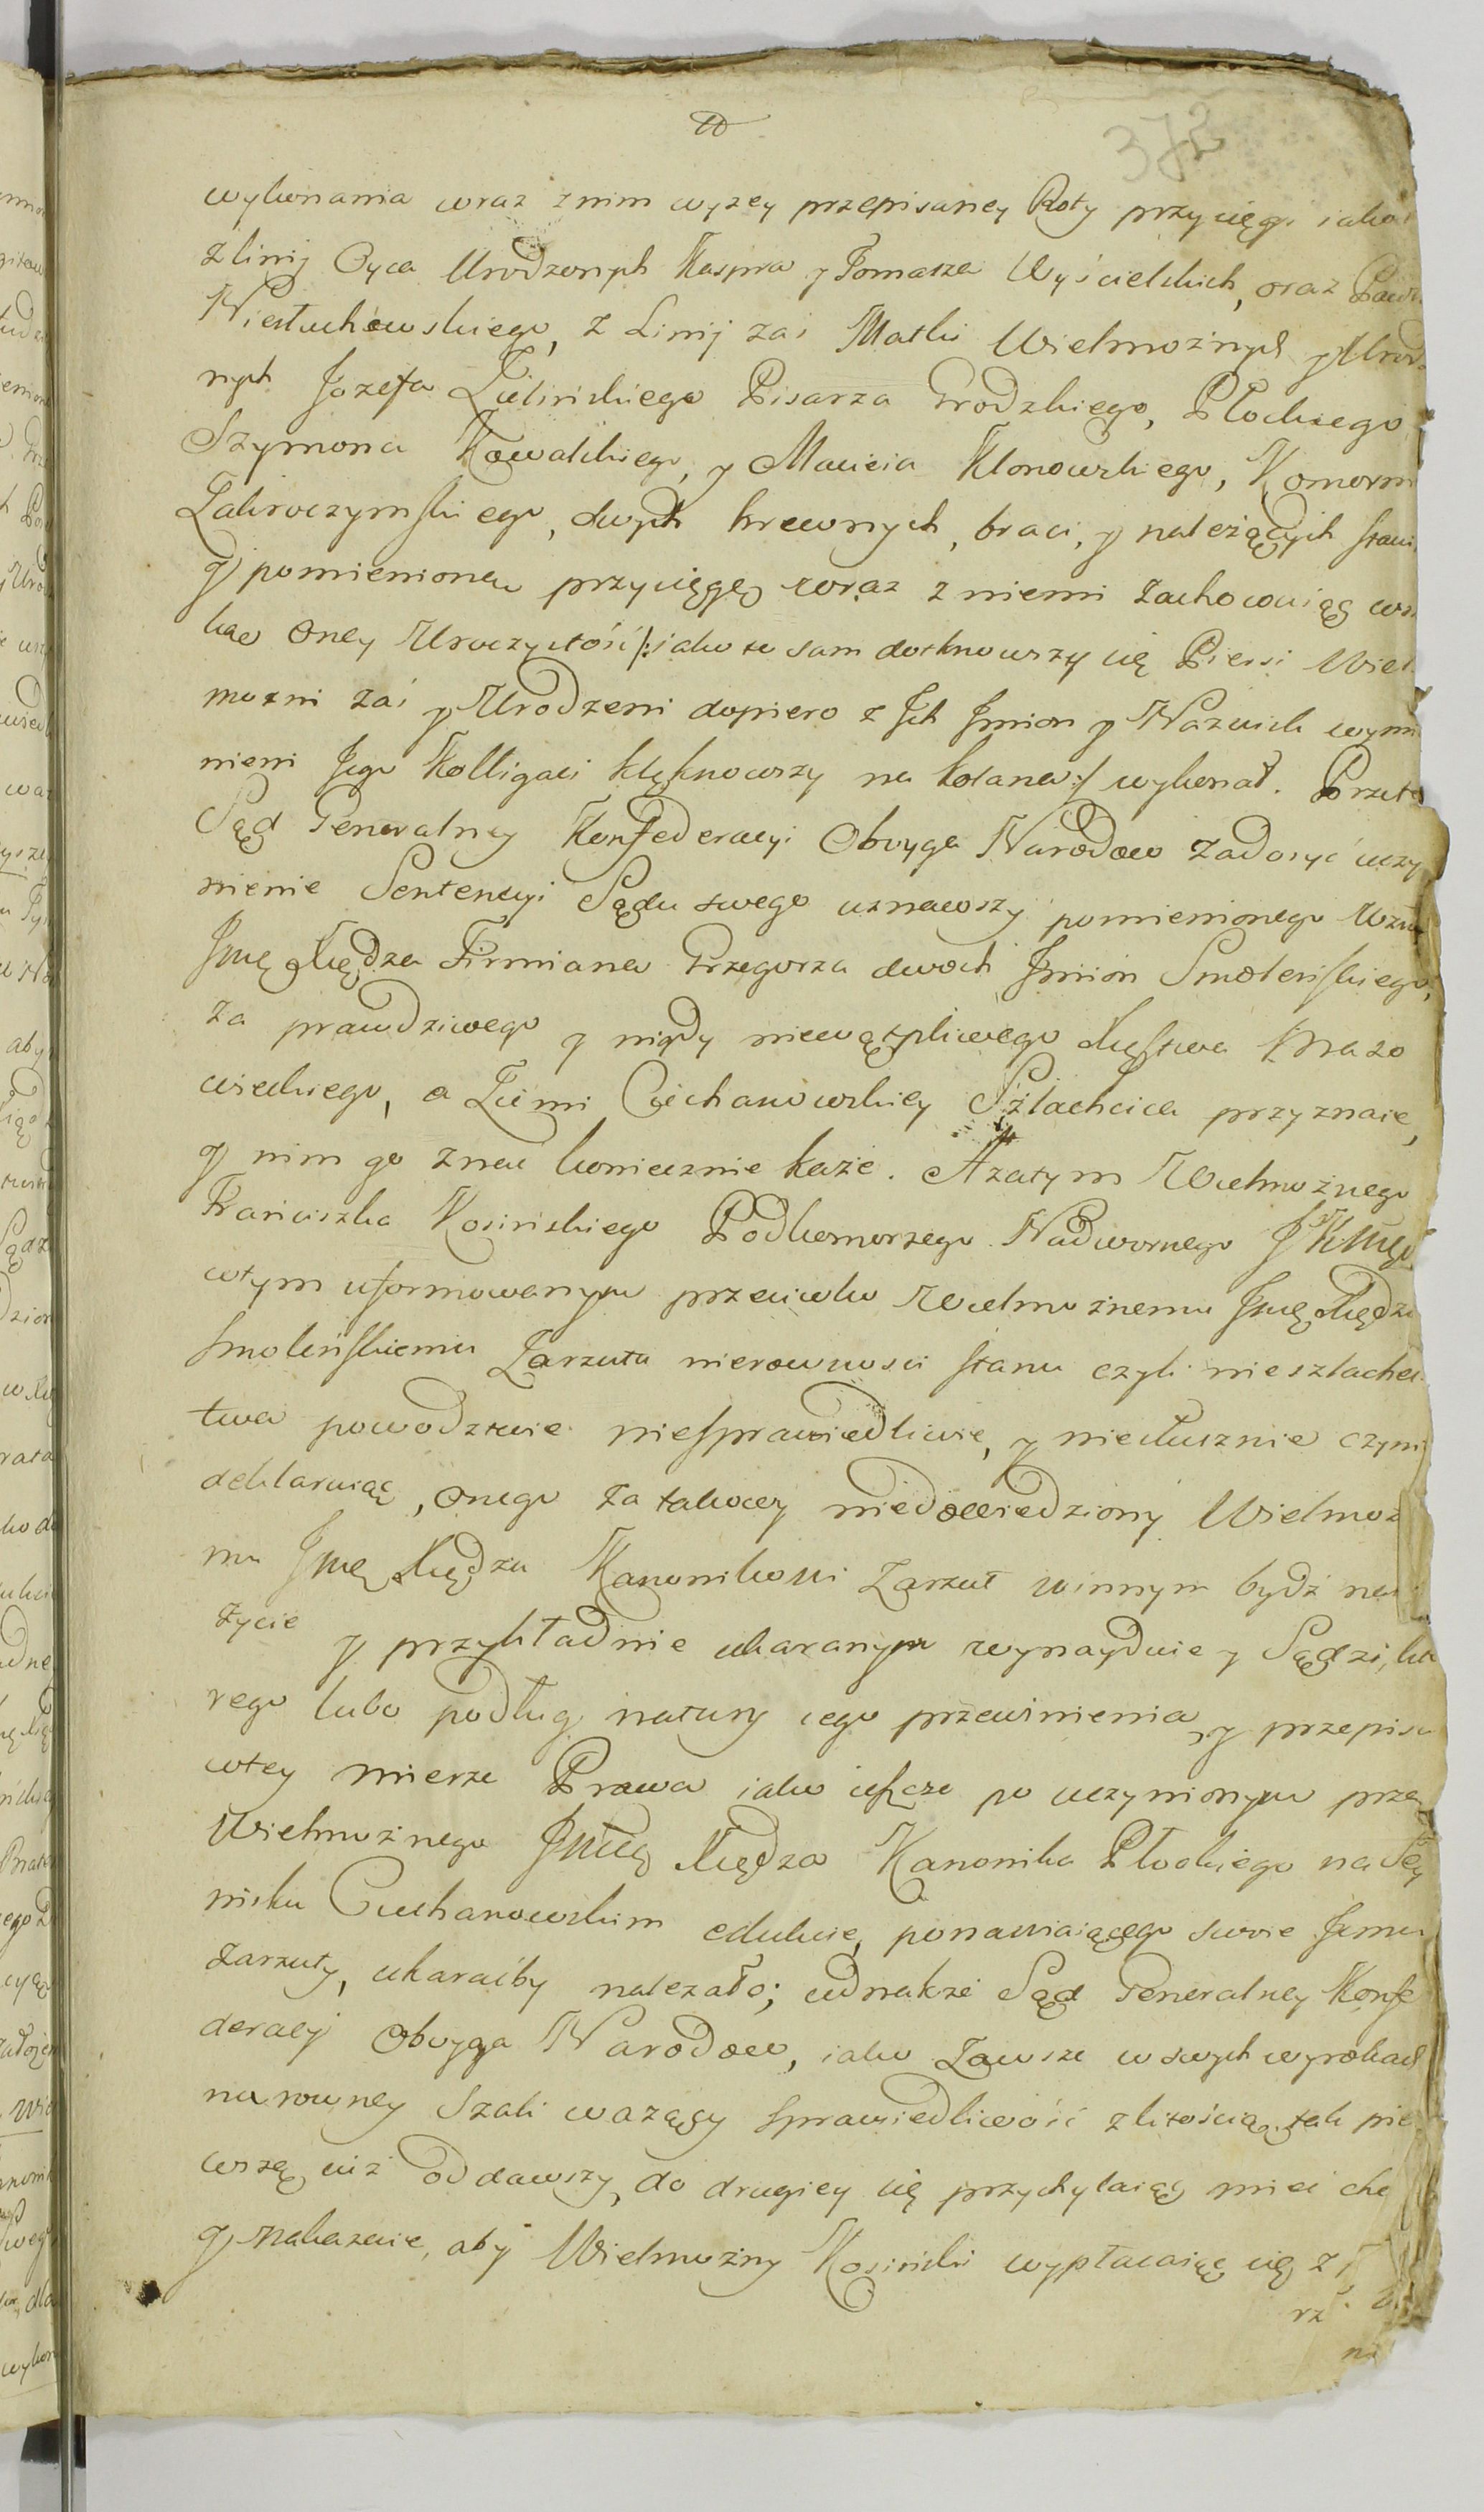 372
wykonania wraz z nim wyzey przepisaney Roty przysięgi iako
z linij Oyca Urodzonych Kaspra y Tomasza Wyścielskich, oraz
Niestuchowskiego, z Linij zaś Matki Wielmożnych y Urod
nych Jozefa Zielińskiego Pisarza Grodzkiego, Płockiego
Szymona Kowalskiego, y Macieia Klonowskiego, Komorni
Zakroczymskiego, swych krewnych, braci, y należących stawi
y pomienioną przysięgę wraz z niemi zachowuiąc
oney Uroczystość /: iako to sam dotknowszy się Piersi Wiel
mozni zaś y Urodzeni dopiero z Ich Imion y Nazwisk wymi
nieni Jego Kolligaci klęknowszy na kolana :/ wykonał. Przeto
Sąd Generalney Konfederacyi Oboyga Narodow zadosyć uczy
nienie Sentencyi Sądu swego uznawszy pomienionego
Jmę Xiędza Firmiana Grzegorza dwoch Imion Smoleńskiego,
za prawdziwego y nigdy niewątpliwego Xięstwa Mazo
wieckiego, a Ziemi Ciechanowskiey Szlachcica przyznaie,
y nim go znać koniecznie każe. A zatym Wielmożnego
Franciszka Kosińskiego Podkomorzego Nadwornego JKMci
w tym uformowanym przeciwko Wielmożnemu Jmę Xiędzu
Smoleńskiemu Zarzutu nierowności stanu czyli nieszlachec
twa powodztwie niesprawiedliwie, y niesłusznie czyni
deklaruiąc, onego za takowy niedowiedziony Wielmoż
mu Jmę Xiędzu Kanonikowi Zarzut winnym bydź na
życie y przykładnie ukaranym wynayduie y Sądzi, kto
rego lubo podług natury iego przewinienia, y przepisu
w tey mierze Prawa iako ieszcze po uczynionym przez
Wielmożnego Jmę Xiędza Kanonika Płockiego na Sey
miku Ciechanowskim edukcie, ponawiaiącego swoie Jemu
zarzuty, ukaraćby należało; iednakże Sąd Generalney Konfe
deracyi Oboyga Narodow, iako zawsze w swych wyrokach
na rowney Szali ważący sprawiedliwość z litością, tak pier
wszą iuż oddawszy, do drugiey się przychylaiąc mieć chce
y nakazuie, aby Wielmożny Kosiński wypłacaiąc się z
rz